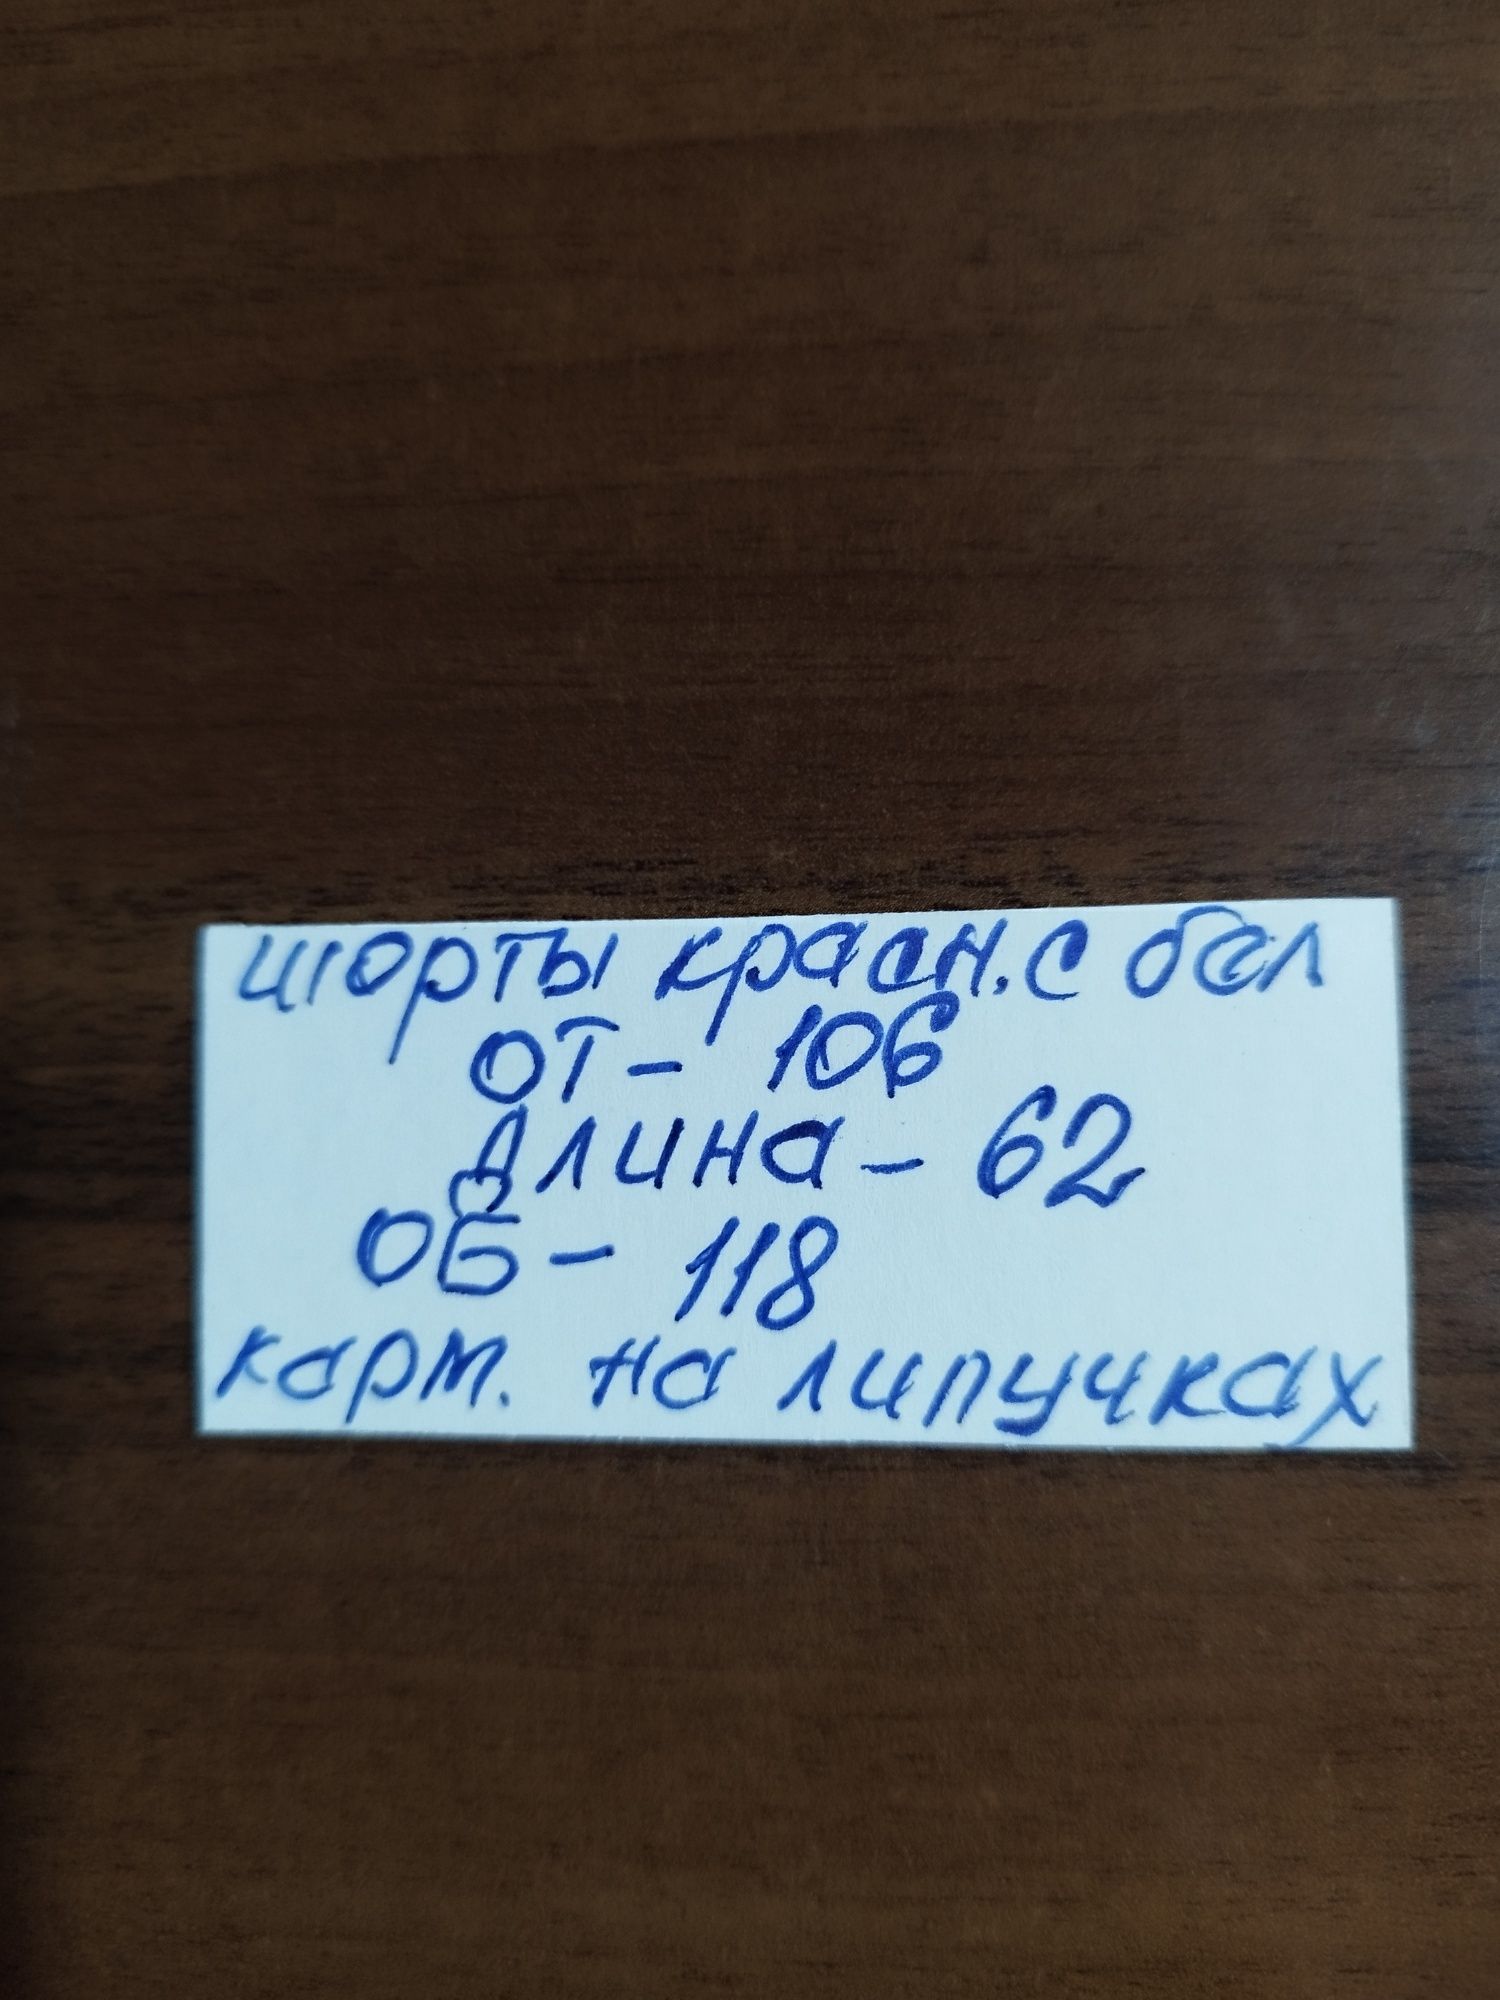 шорты красн. с бел
ОТ - 106
Длина - 62
ОБ - 118
карм. на липучках